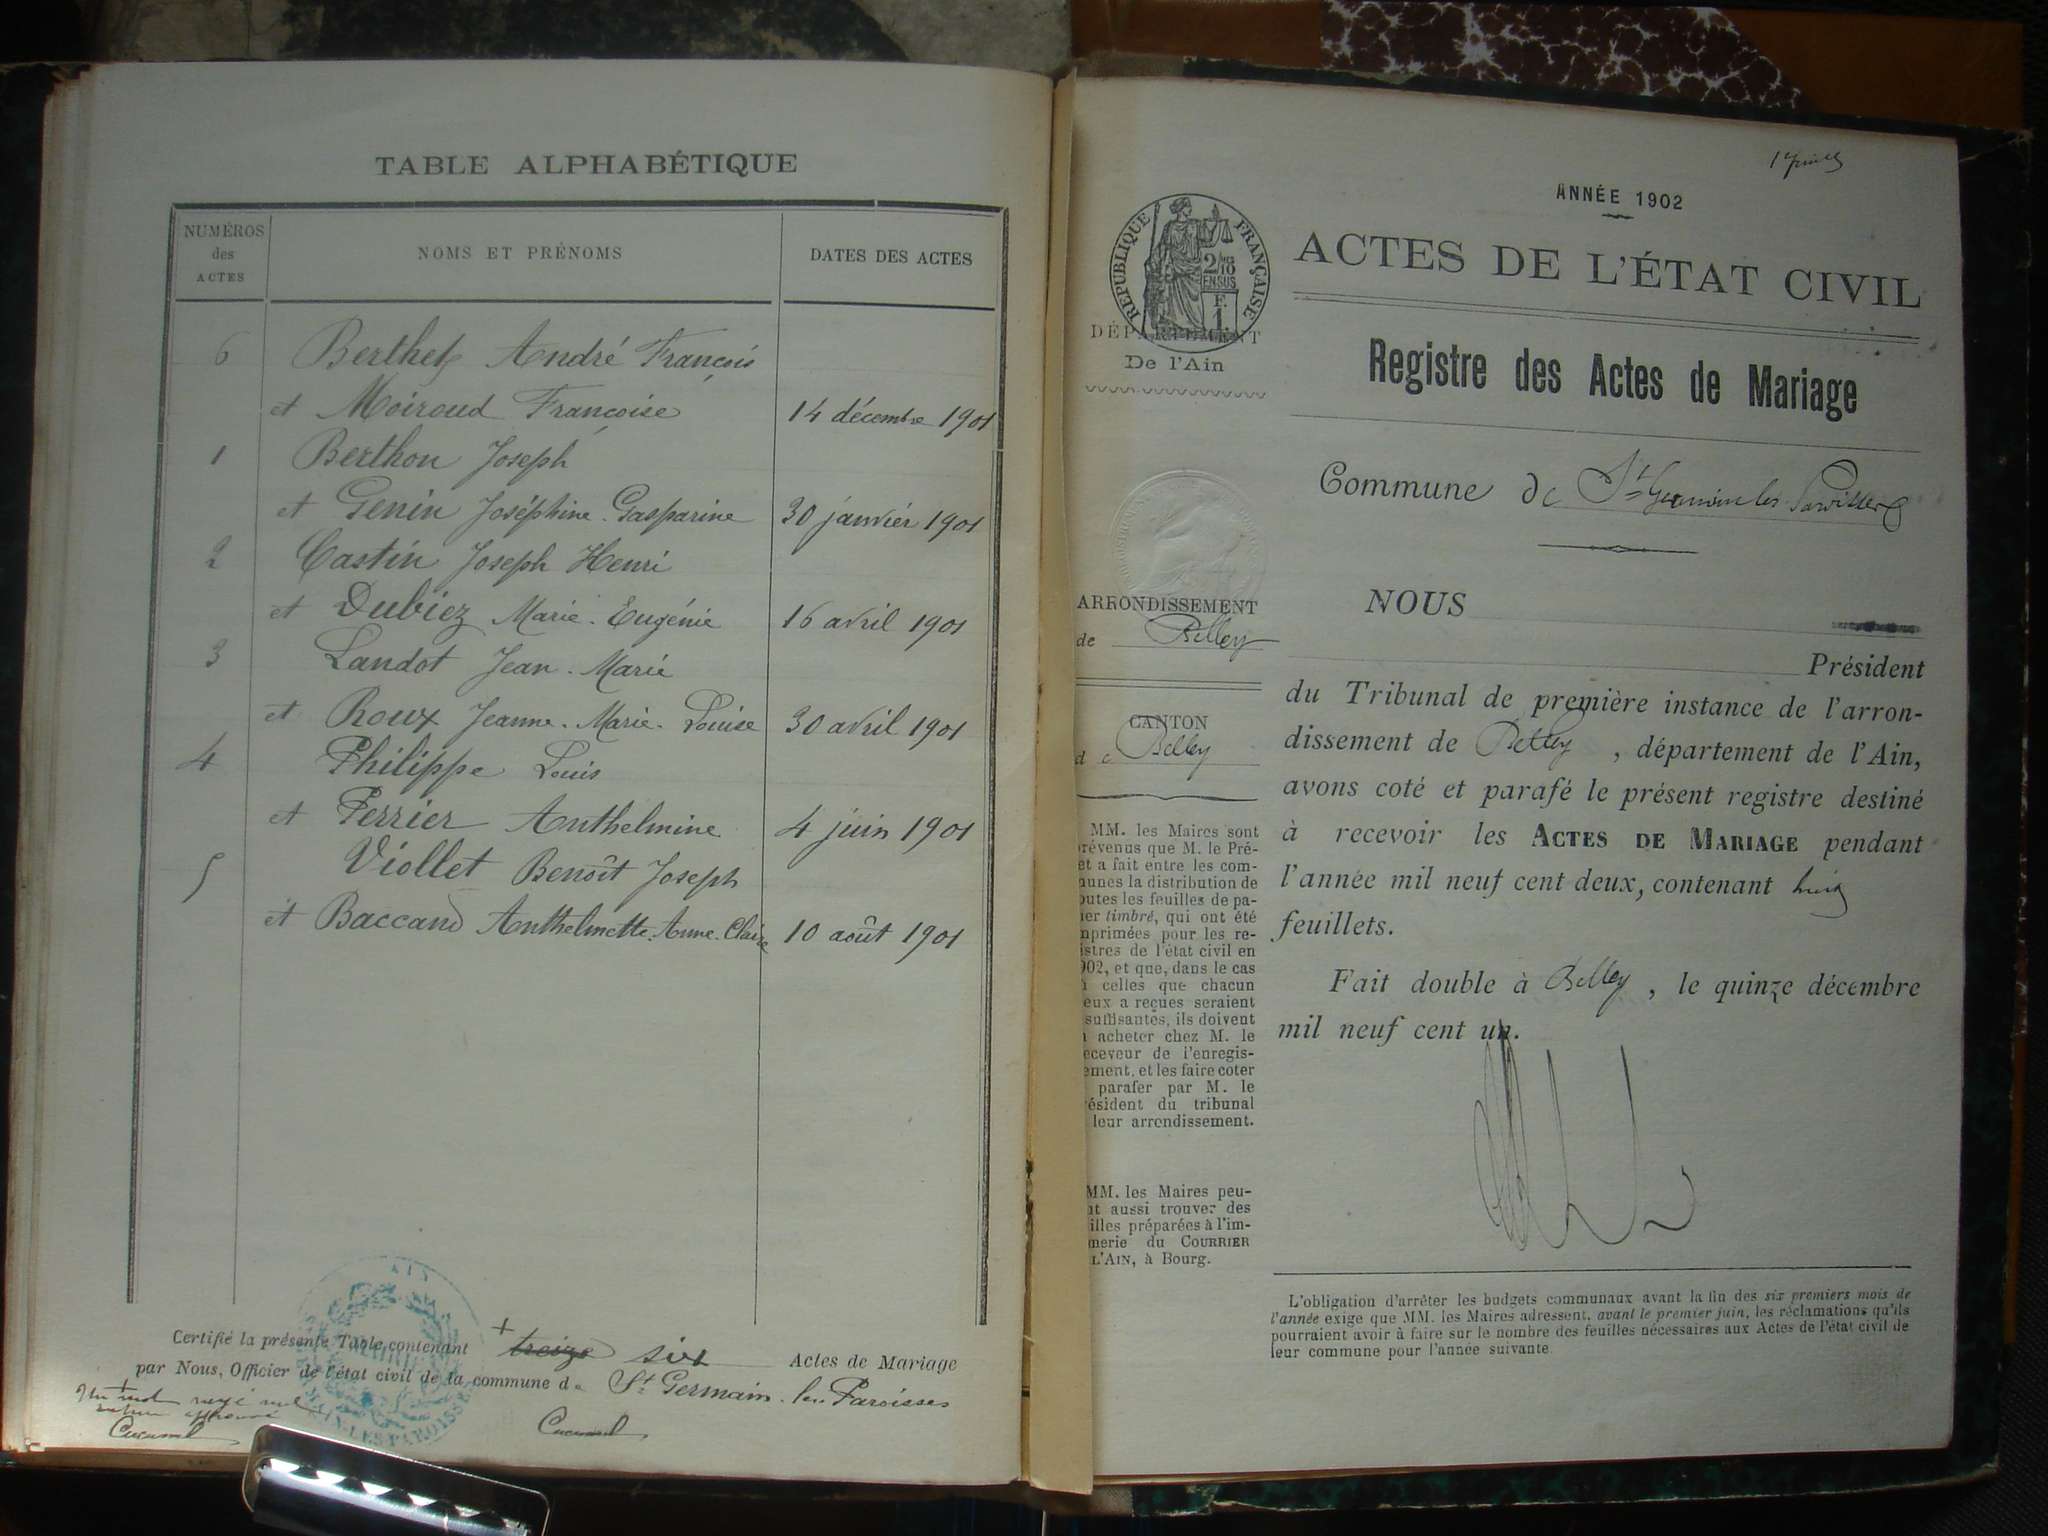 TABLE ALPHABÉTIQUE
NUMÉROS
des
ACTES
NOMS ET PRÉNOMS
DATES DES ACTES
6 Berthet André François
et Moiroud Françoise 14 décembre 1901
1 Berthon Joseph
et Genin Joséphine-Gasparine 30 janvier 1901
2 Castin Joseph Henri
et Dubiez Marie-Eugénie 16 avril 1901
3 Landot Jean-Marie
et Roux Jeanne-Marie-Louise 30 avril 1901
4 Philippe Louis
et Perrier Anthelmine 4 juin 1901
5 Viollet Benoît Joseph
et Baccand Anthelmette-Anne-Claire 10 août 1901
AIN
Certifié la présente Table contenant + treize six Actes de Mariage
par Nous, Officier de l'état civil de la commune de St Germain-les-Paroisses
+
Un mot rayé nul
approuvé
ANNÉE 1902
ACTES DE L'ÉTAT CIVIL
Registre des Actes de Mariage
Commune de St Germain les Paroisses
NOUS
Président
du Tribunal de première instance de l'arron-
dissement de Belley, département de l'Ain,
avons coté et parafé le présent registre destiné
à recevoir les ACTES DE MARIAGE pendant
l'année mil neuf cent deux, contenant huit
feuillets.
Fait double à Belley, le quinze décembre
mil neuf cent un.
L'obligation d'arrêter les budgets communaux avant la fin des six premiers mois de
l'année exige que MM. les Maires adressent, avant le premier juin, les réclamations qu'ils
pourraient avoir à faire sur le nombre des feuilles nécessaires aux Actes de l'état civil de
leur commune pour l'année suivante.
RÉPUBLIQUE FRANÇAISE
2/10
EN SUS
F.
1
DÉPARTEMENT
De l'Ain
ARRONDISSEMENT
de Belley
CANTON
de Belley
MM. les Maires sont
révenus que M. le Pré-
et a fait entre les com-
munes la distribution de
outes les feuilles de pa-
ier timbré, qui ont été
mprimées pour les re-
istres de l'état civil en
902, et que, dans le cas
celles que chacun
eux a reçues seraient
suffisantes, ils doivent
acheter chez M. le
eceveur de l'enregis-
ement, et les faire coter
parafer par M. le
résident du tribunal
leur arrondissement.
MM. les Maires peu-
nt aussi trouver des
illes préparées à l'im-
merie du COURRIER
L'AIN, à Bourg.